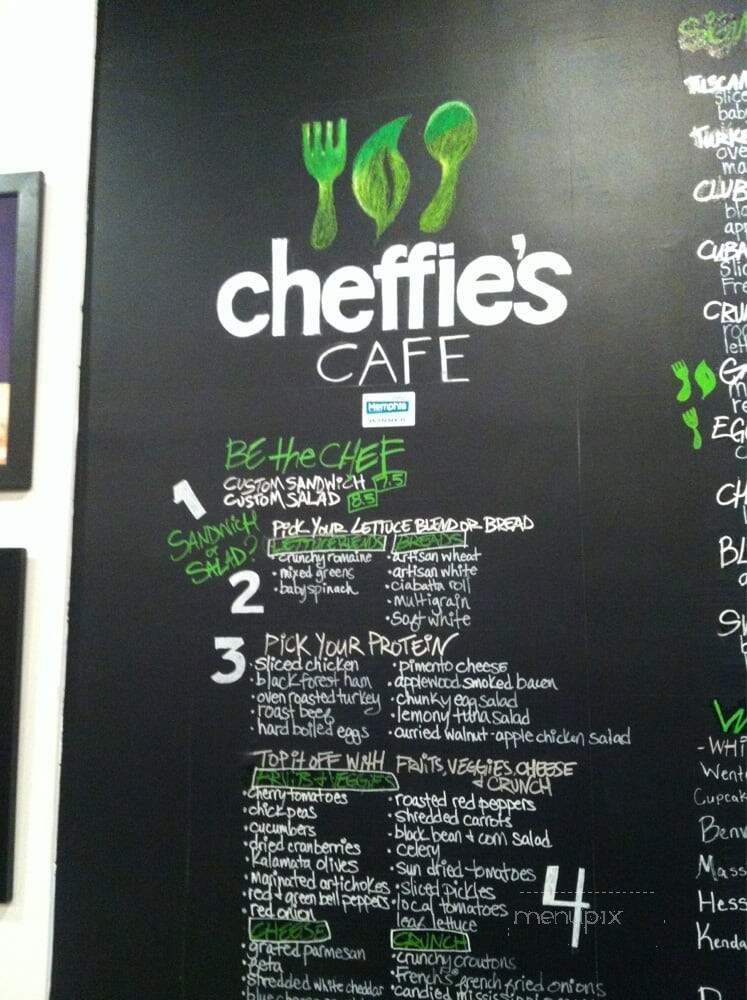 cheffie's
CAFE
Memphis
BE the CHEF
1
CUSTOM SANDWICH 7.5
CUSTOM SALAD 8.5
SANDWICH
or
SALAD?
2
PICK YOUR LETTUCE BLEND OR BREAD
LETTUCE BLENDS
• crunchy romaine
• mixed greens
• baby spinach
BREADS
• artisan wheat
• artisan white
• ciabatta roll
• multigrain
• soft white
3
PICK YOUR PROTEIN
• sliced chicken
• black forest ham
• oven roasted turkey
• roast beef
• hard boiled eggs
• pimento cheese
• applewood smoked bacon
• chunky egg salad
• lemony tuna salad
• curried walnut-apple chicken salad
4
TOP IT OFF WITH FRUITS, VEGGIES, CHEESE
& CRUNCH
FRUITS & VEGGIES
• cherry tomatoes
• chick peas
• cucumbers
• dried cranberries
• kalamata olives
• marinated artichokes
• red & green bell peppers
• red onion
• roasted red peppers
• shredded carrots
• black bean & corn salad
• celery
• sun dried-tomatoes
• sliced pickles
• local tomatoes
leaf lettuce
CHEESE
• grated parmesan
• feta
• shredded white cheddar
CRUNCH
• crunchy croutons
• French's french fried onions
• candied
menupix
TUSCAN
slice
baby
TURKE
ove
ma
CLUB
bla
app
CUBA
Slic
Fre
CRU
roa
lett
EGG
CH
BL
SW
W
-WHI
Went
Cupcake
Benv
Mass
Hess
Kenda